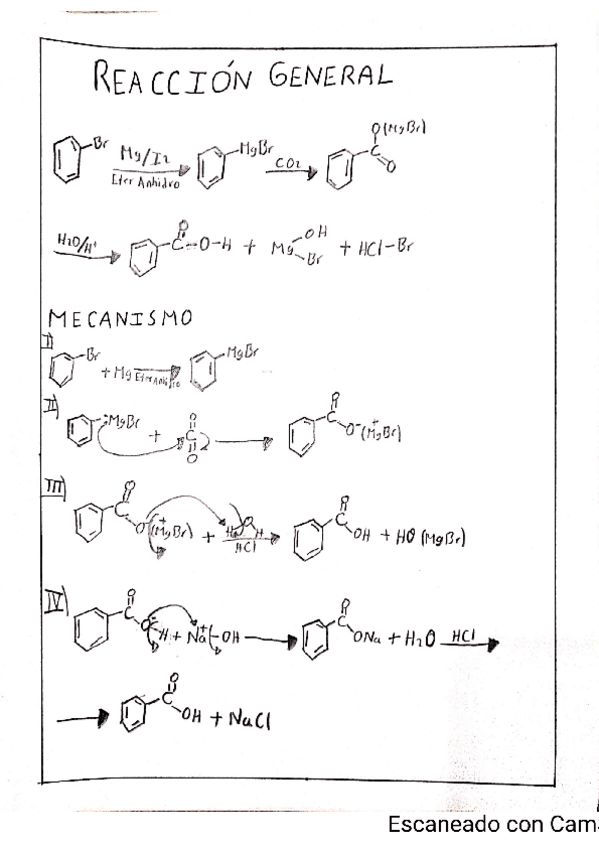 REACCIÓN GENERAL
Br Mg/I2 Eter Anhidro MgBr CO2 C O(MgBr) O
H2O/H+ C O O-H + Mg OH Br + HCl-Br
MECANISMO
I)
Br + Mg Eter Anhidro MgBr
II)
:MgBr + O C O C O O-(MgBr)+
III)
C O O-(MgBr)+ + H O H HCl C O OH + HO(MgBr)
IV)
C O O H + Na+(-OH C O ONa + H2O HCl
C O OH + NaCl
Escaneado con Cam